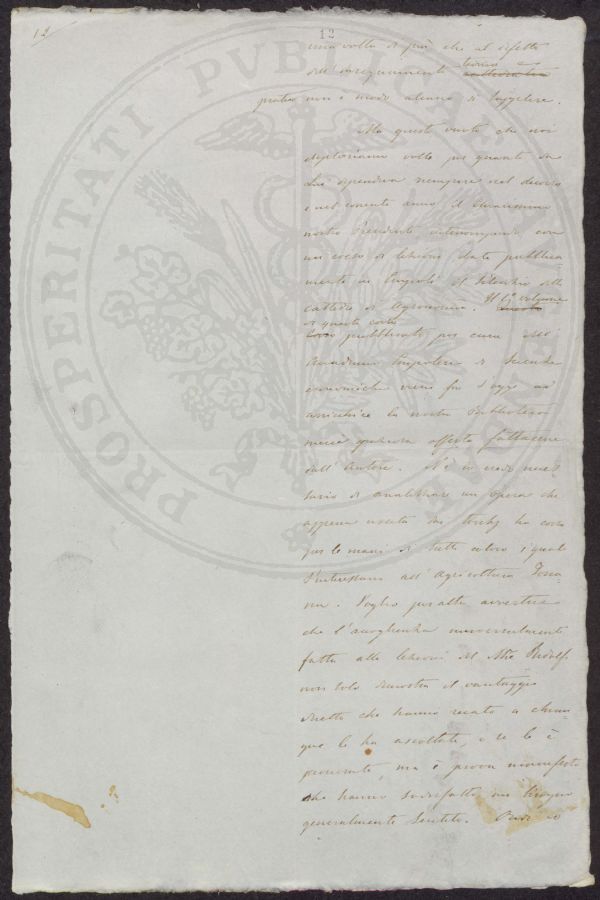 12
12
una volta di più che al difetto
dell'insegnamento teorico e
pratico non è modo alcuno di supplire.
Ma questo vuoto che noi
deploriamo volle per quanto da
Lui dipendeva riempire nel decorso
e nel corrente anno il Chiarissimo
nostro Presidente
un corso di lezioni date pubblica-
mente in Empoli
cattedra di Agronomia. Il 1° volume
di questo corso
pubblicato per cura dell'
Accademia Empolese di Scienze
economiche viene fin d'oggi ad
arricchire la nostra Biblioteca
mercè generosa offerta fattacene
dall'Autore. Nè io credo neces
sario di analizzare un'opera che
appena uscita dai torchj ha corso
per le mani di tutti coloro i quali
s'interessano all'Agricoltura Tosca-
na. Voglio per altro avvertire
che l'accoglienza universalmente
fatta alle lezioni del Mse Ridolfi
non solo dimostra il vantaggio
diretto che hanno recato a chiun-
que le ha ascoltate, o se le è
procurate, ma è prova manifesta
che hanno sodisfatto un bisogno
generalmente sentito.
PROSPERITATI PUBLICAE